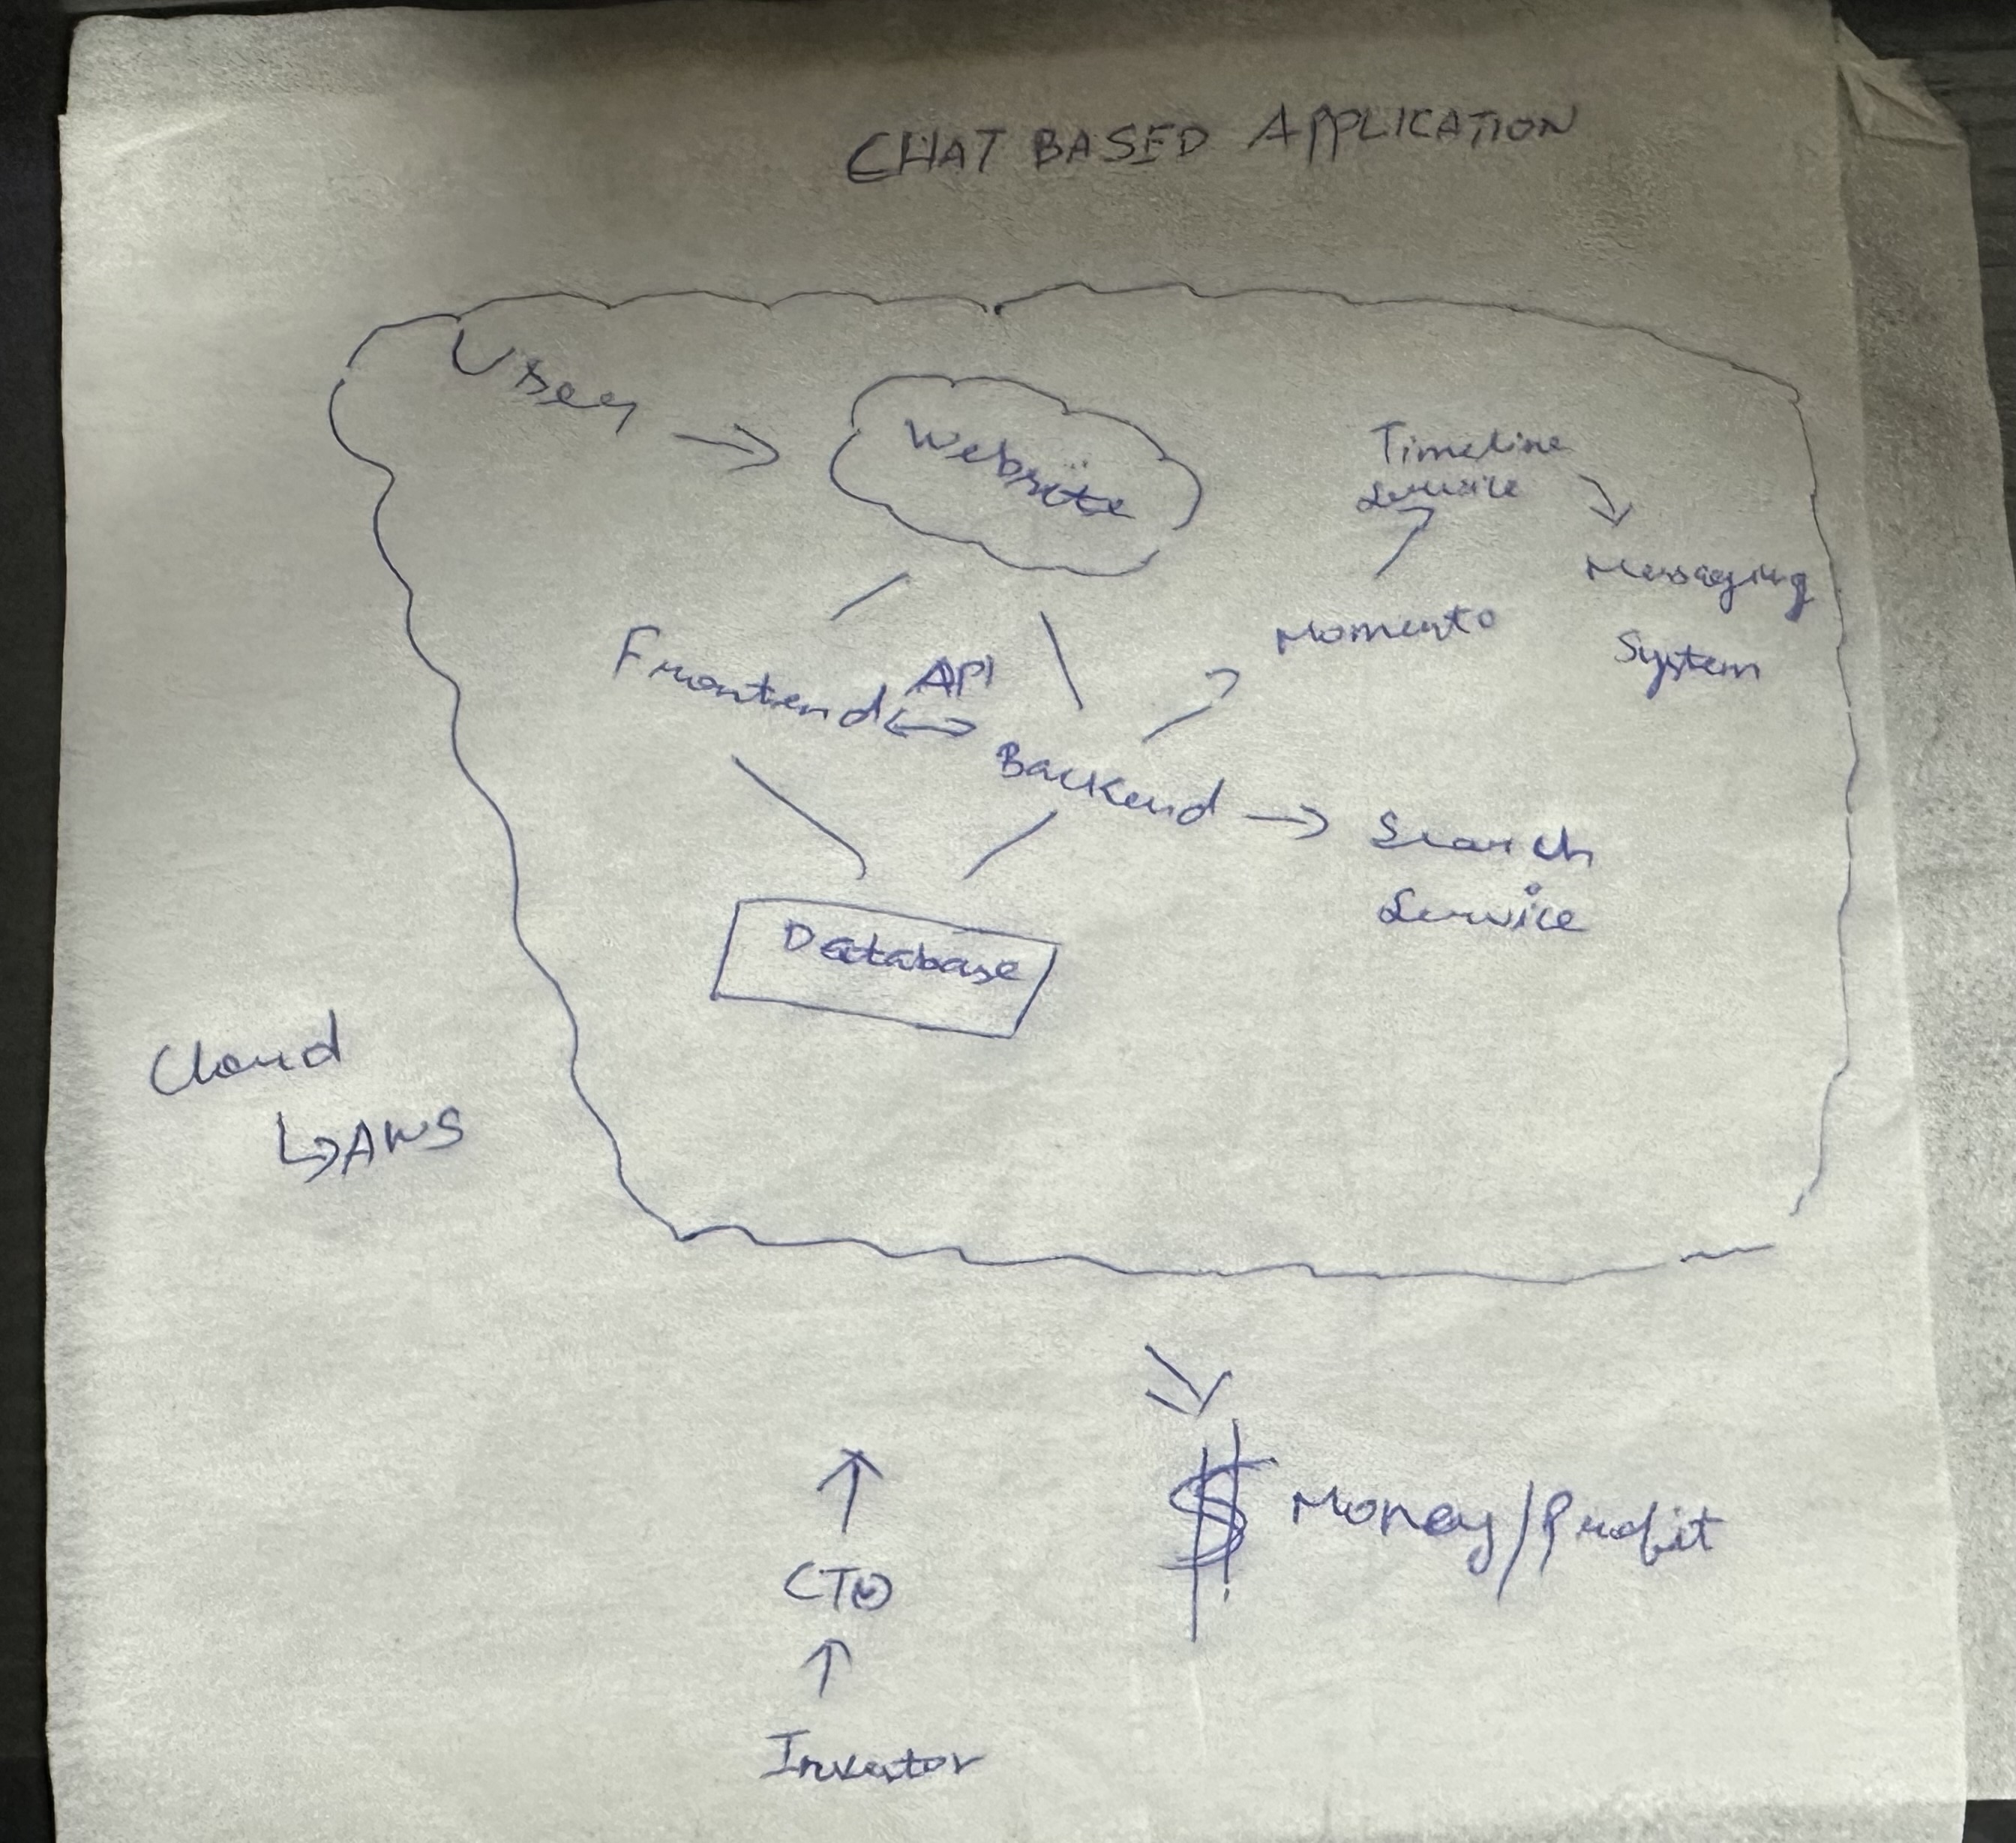 CHAT BASED APPLICATION
User
Website
Timeline
Service
Messaging
System
Momento
Frontend
API
Backend
Search
Service
Database
Cloud
AWS
$ Money/Profit
CTO
Investor